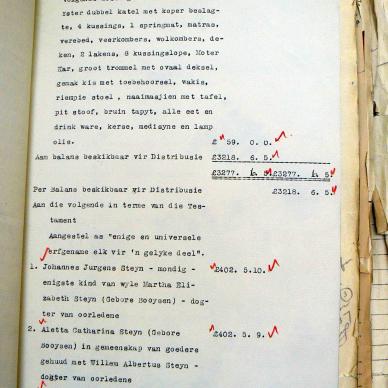 yster dubbel katel met koper beslag-
te, 4 kussings, 1 springmat, matras,
verebed, veerkombers, wolkombers, de-
ken, 2 lakens, 6 kussingslope, Moter
Kar, groot trommel met ovaal deksel,
gemak kis met toebehoorsel, wakis,
riempie stoel , naaimasjien met tafel,
pit stoof, bruin tapyt, alle eet en
drink ware, kerse, medisyne en lamp
olie. £ 59. 0. 0.
Aan balans beskikbaar vir Distribusie £3218. 6. 5.
£3277. 6. 5 £3277. 6. 5
Per Balans beskikbaar vir Distribusie £3218. 6. 5.
Aan die volgende in terme van die Tes-
tament
Aangestel as "enige en universele
erfgename elk vir 'n gelyke deel".
1. Johannes Jurgens Steyn - mondig - £402. 5.10.
enigste kind van wyle Martha Eli-
zabeth Steyn (Gebore Booysen) - dog-
ter van oorledene
2. Aletta Catharina Steyn (Gebore £402. 5. 9.
Booysen) in gemeenskap van goedere
gehuud met Willem Albertus Steyn -
dogter van oorledene